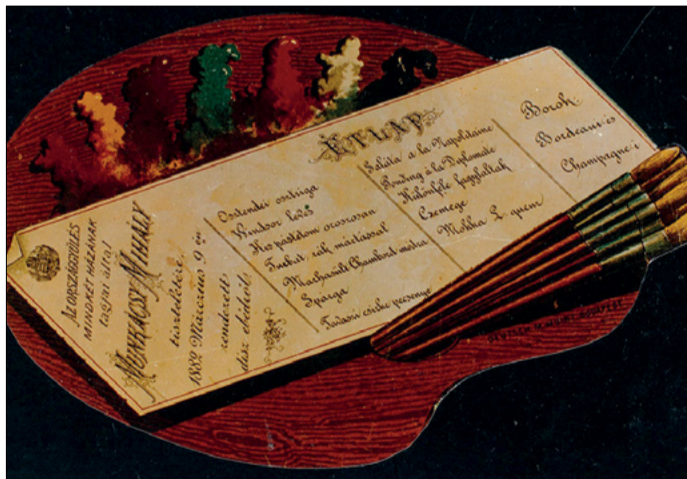 AZ ORSZÁGGYŰLÉS
MINDKÉT HÁZÁNAK
tagjai által
MUNKÁCSY MIHÁLY
tiszteletére
1882 Márczius 9 én
rendezett
disz ebéd
ÉTLAP
Ostendei osztriga
Windsor leves
Hus pástétom oroszosan
Turbot, rák mártással
Marhasült Chambord módra
Spárga
Saláta a la Napolitaine
Pouding á la Diplomate
Különféle fagylaltok
Czemege
Mokka
Borok:
Bordeaux és
Champagne i